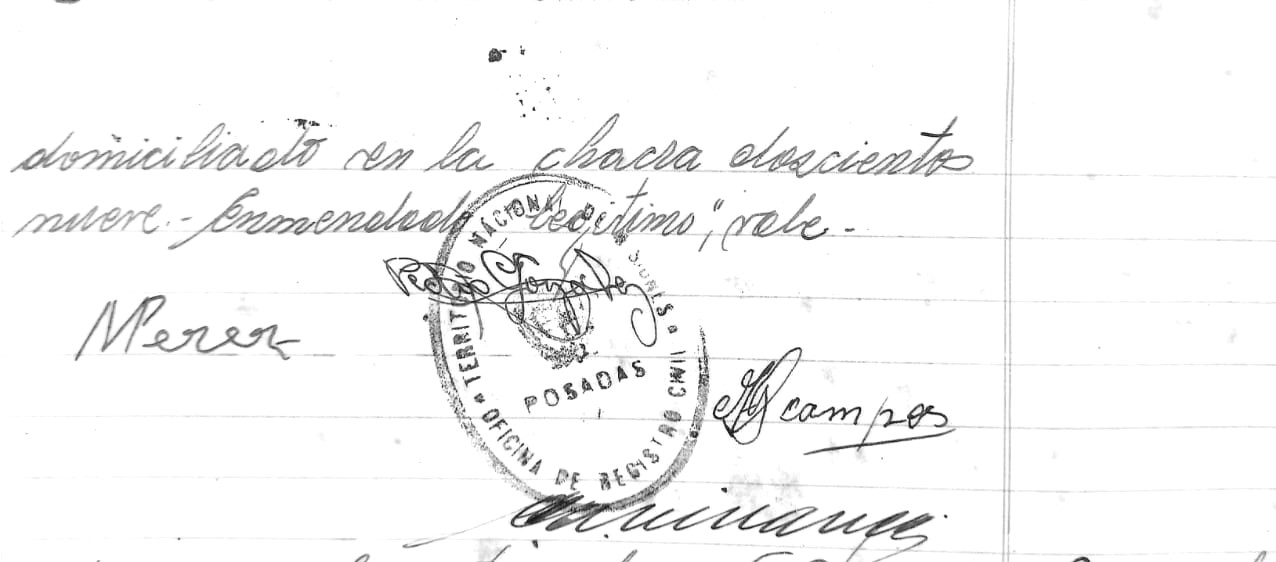 domiciliado en la chacra doscientos
nueve.- Enmendado "legitimo", vale.-
TERRITORIO NACIONAL DE MISIONES
Pedro Gonzalez
POSADAS
OFICINA DE REGISTRO CIVIL